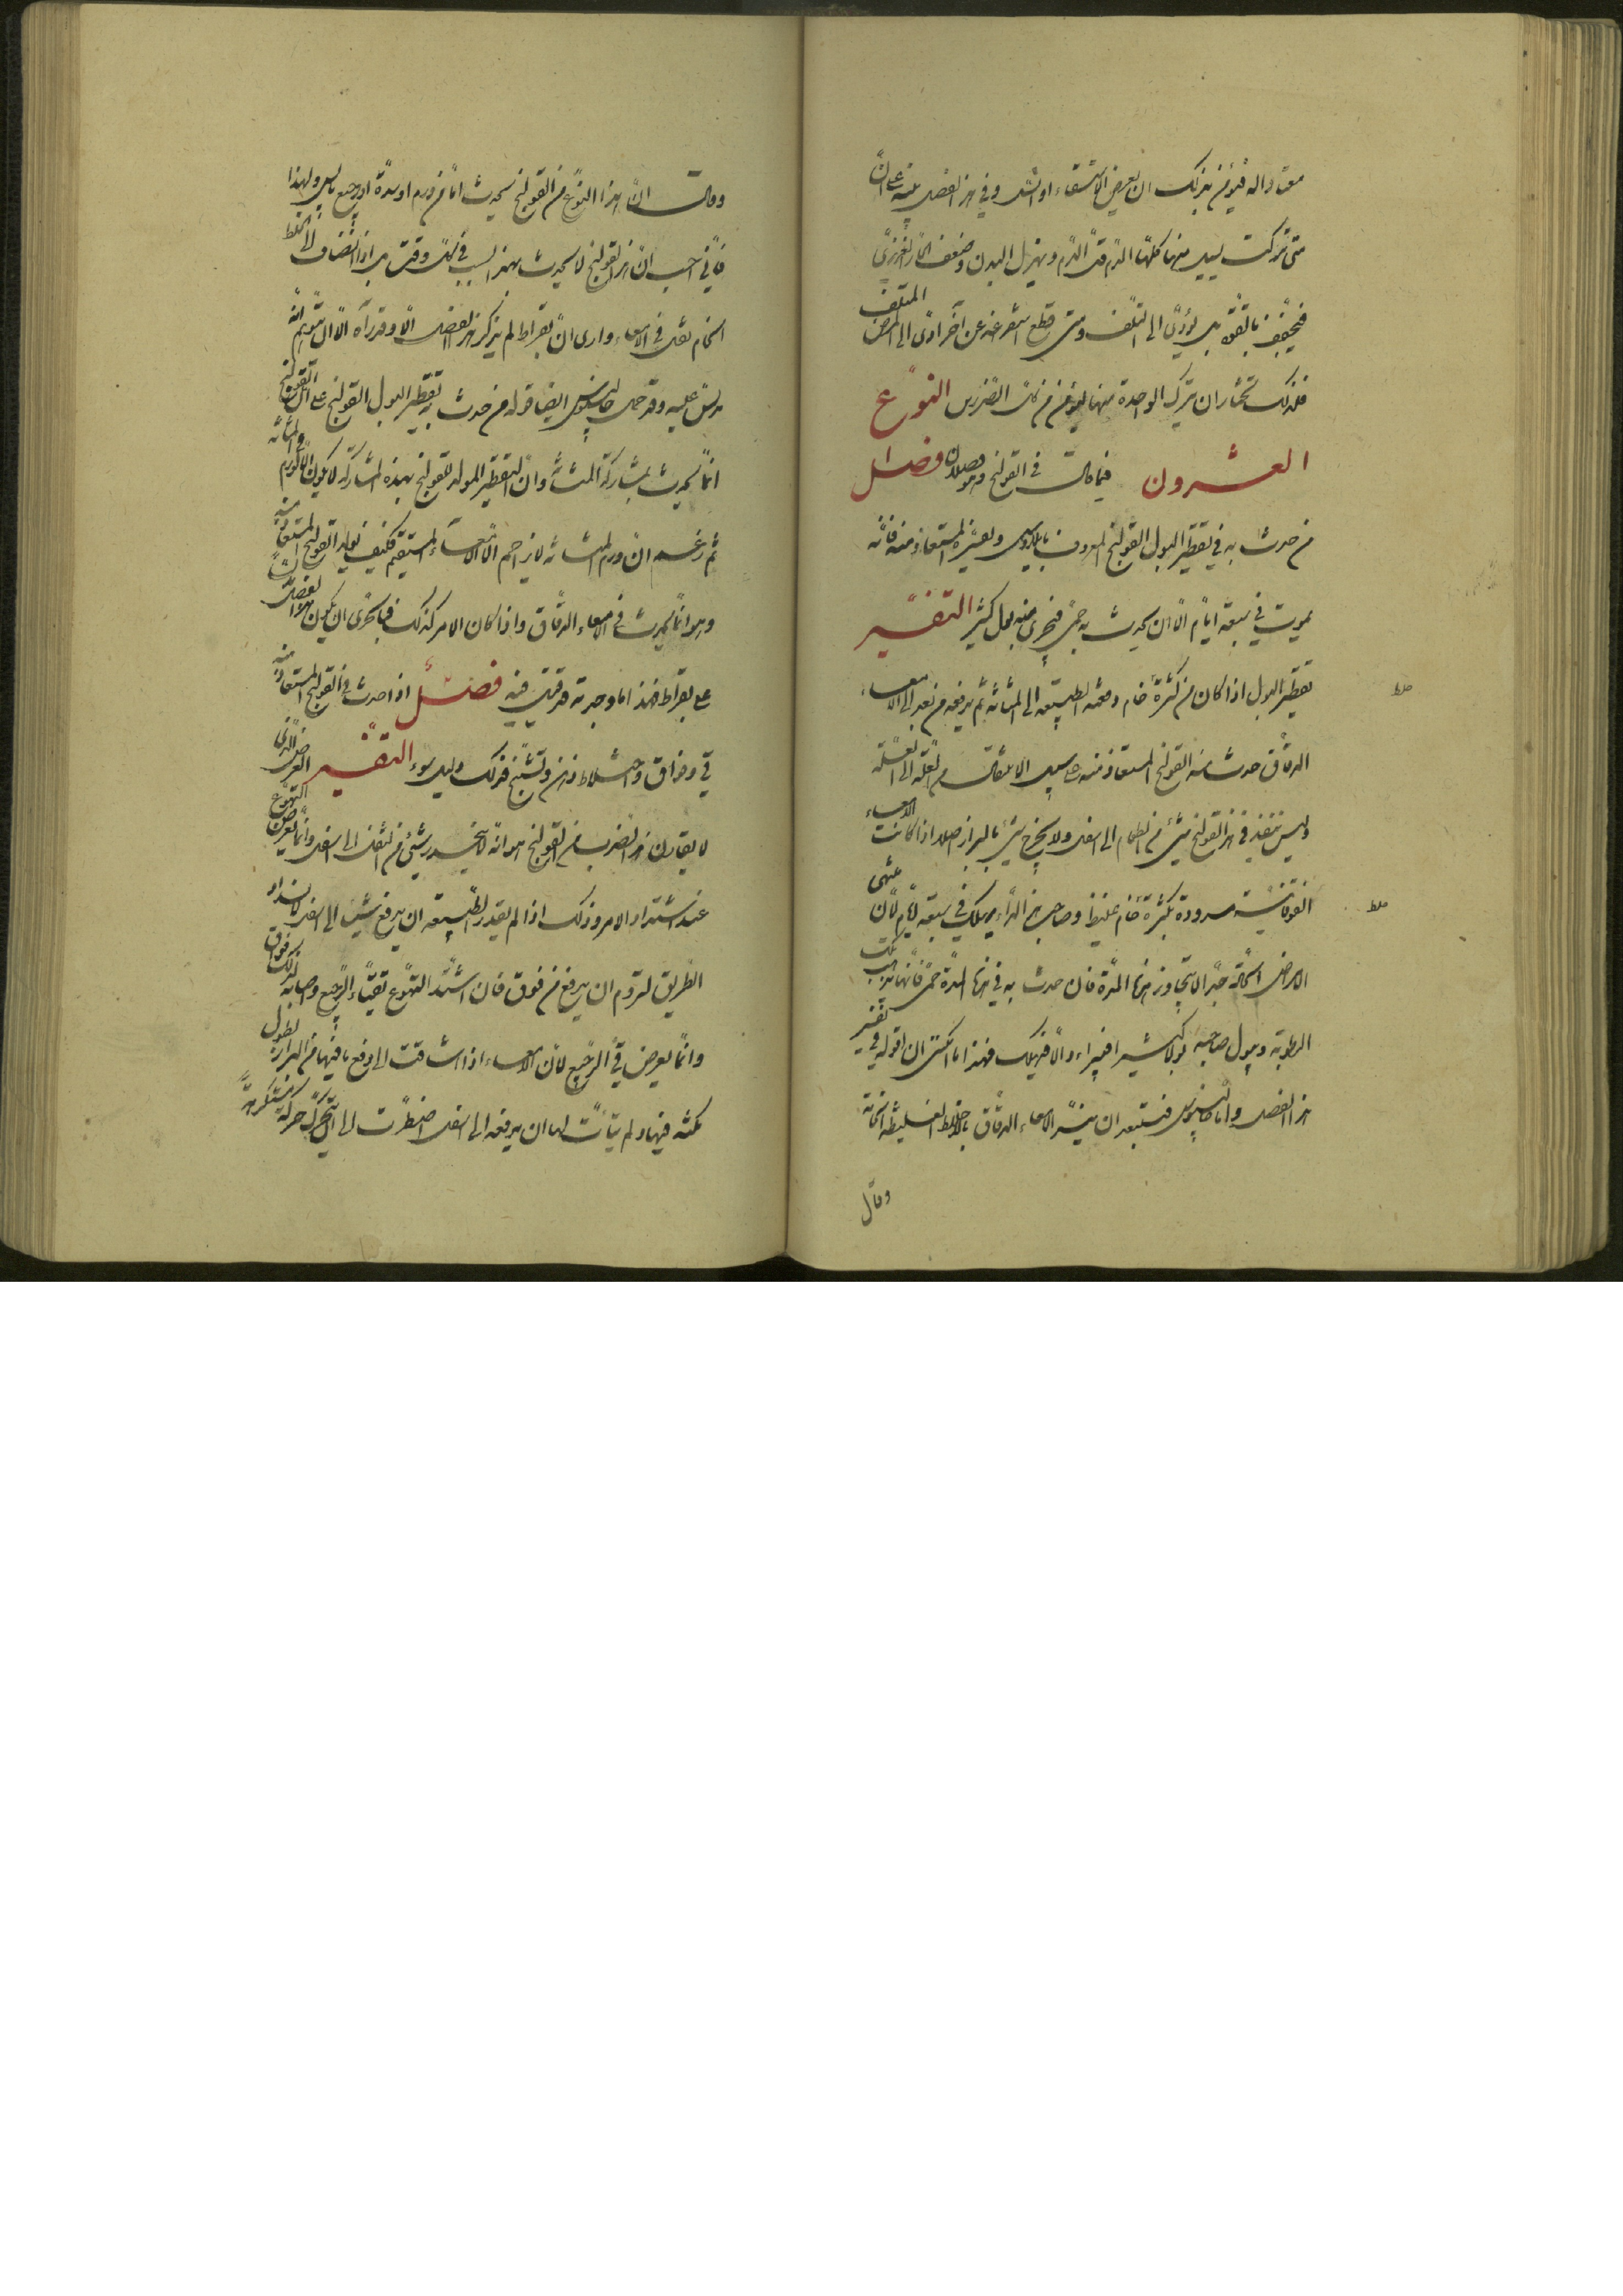 معتادا له فيؤمن بذلك ان يعرض الاستسقاء او السل وفي هذا الفصل بينه على ان
متى تركت يسيل منها كلها الدم قل الدم ويهزل البدن وضعف الحار الغريزي
بل يؤدي الى التلف ومتى قطع استفراغه عن آخره ادى الى المرض المتلف
فلذلك تختار ان تترك الواحدة منها ليؤمن من كل الضررين النوع
العشرون فيما قال في القولنج وهو فصلان فصل
من حدث به في تقطير البول القولنج المعروف بايلاوس وتفسيره المستعاذ منه فانه
يموت في سبعة ايام الا ان يحدث به حمى فيجري منه بول كثير التفسير
تقطير البول اذا كان من كثرة خام دفعته الطبيعة الى المثانة ثم يدفعه من بعد الى الامعاء
الدقاق حدث منه القولنج المستعاذ منه على سبيل الانتقال من العلة الى العلة
وليس ينفذ في هذا القولنج شيء من الطعام الى اسفل ولا يخرج شيء بالبراز اصلا اذا كانت الامعاء
الفوقانية مسدودة بكثرة خام غليظ وصاحب هذا الداء يهلك في سبعة ايام لان منتهى
الامراض الحادة جدا لا يتجاوز هذه المدة فان حدث به في هذه المدة حمى فانها تذيب تلك
الرطوبة ويبول صاحبه بولا كثيرا فيبرأ والا فيهلك فهذا ما امكنني ان اقوله في تفسير
هذا الفصل واما جالينوس فيستبعد ان ينسد الامعاء الدقاق بالاخلاط الغليظة الخامة
وقال
وقال ان هذا النوع من القولنج يحدث اما من ورم او سدة او رجيع يابس ولهذا
فاني احسب ان هذا القولنج لا يحدث بهذا السبب في كل وقت بل اذا انضاف الى الخلط
الخام ثقل في الامعاء وارى ان بقراط لم يذكر هذا الفصل الا وقد رآه الا ان يتوهم انه
مدلس عليه وقد حمل جالينوس ايضا قوله من حدث به تقطير البول القولنج على ان القولنج
انما يحدث بمشاركة المثانة وان التقطير المولد للقولنج بهذه المشاركة لا يكون الا لورم في المثانة
ثم زعم ان ورم المثانة لا يزاحم الا الامعاء المستقيم فكيف يولد القولنج المستعاذ منه
وهو انما يحدث في الامعاء الدقاق واذا كان الامر كذلك فبالحرى ان يكون هذا الفصل
على بقراط فهذا ما وجدته قد قيل فيه فصل اذا حدث في القولنج المستعاذ منه
قيء وفواق واختلاط ذهن وتشنج فذلك دليل سوء التفسير العرض الذي
لا يفارق هذا الضرب من القولنج هو انه لا ينحدر شيء من الثفل الى اسفل وانما يعرض التهوع
عند اشتداد الامر وذلك اذا لم يقدر الطبيعة ان يدفع شيئا الى اسفل لانسداد
الطريق لتروم ان يدفع من فوق فان اشتد التهوع تقيأ الرجيع واصابه لذلك فواق
وانما يعرض قيء الرجيع لان الامعاء اذا اشتاقت الى دفع ما فيها من البراز لطول
مكثه فيها ولم يتأت لها ان يدفعه الى اسفل اضطرت الى ان يتحرك حركة مستكرهة